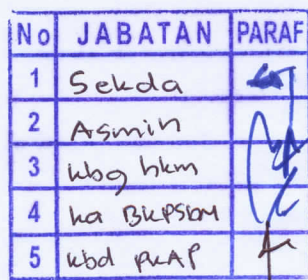 No JABATAN PARAF
1 Sekda
2 Asmin
3 kbg hkm
4 ka BKPSDM
5 kbd PKAP